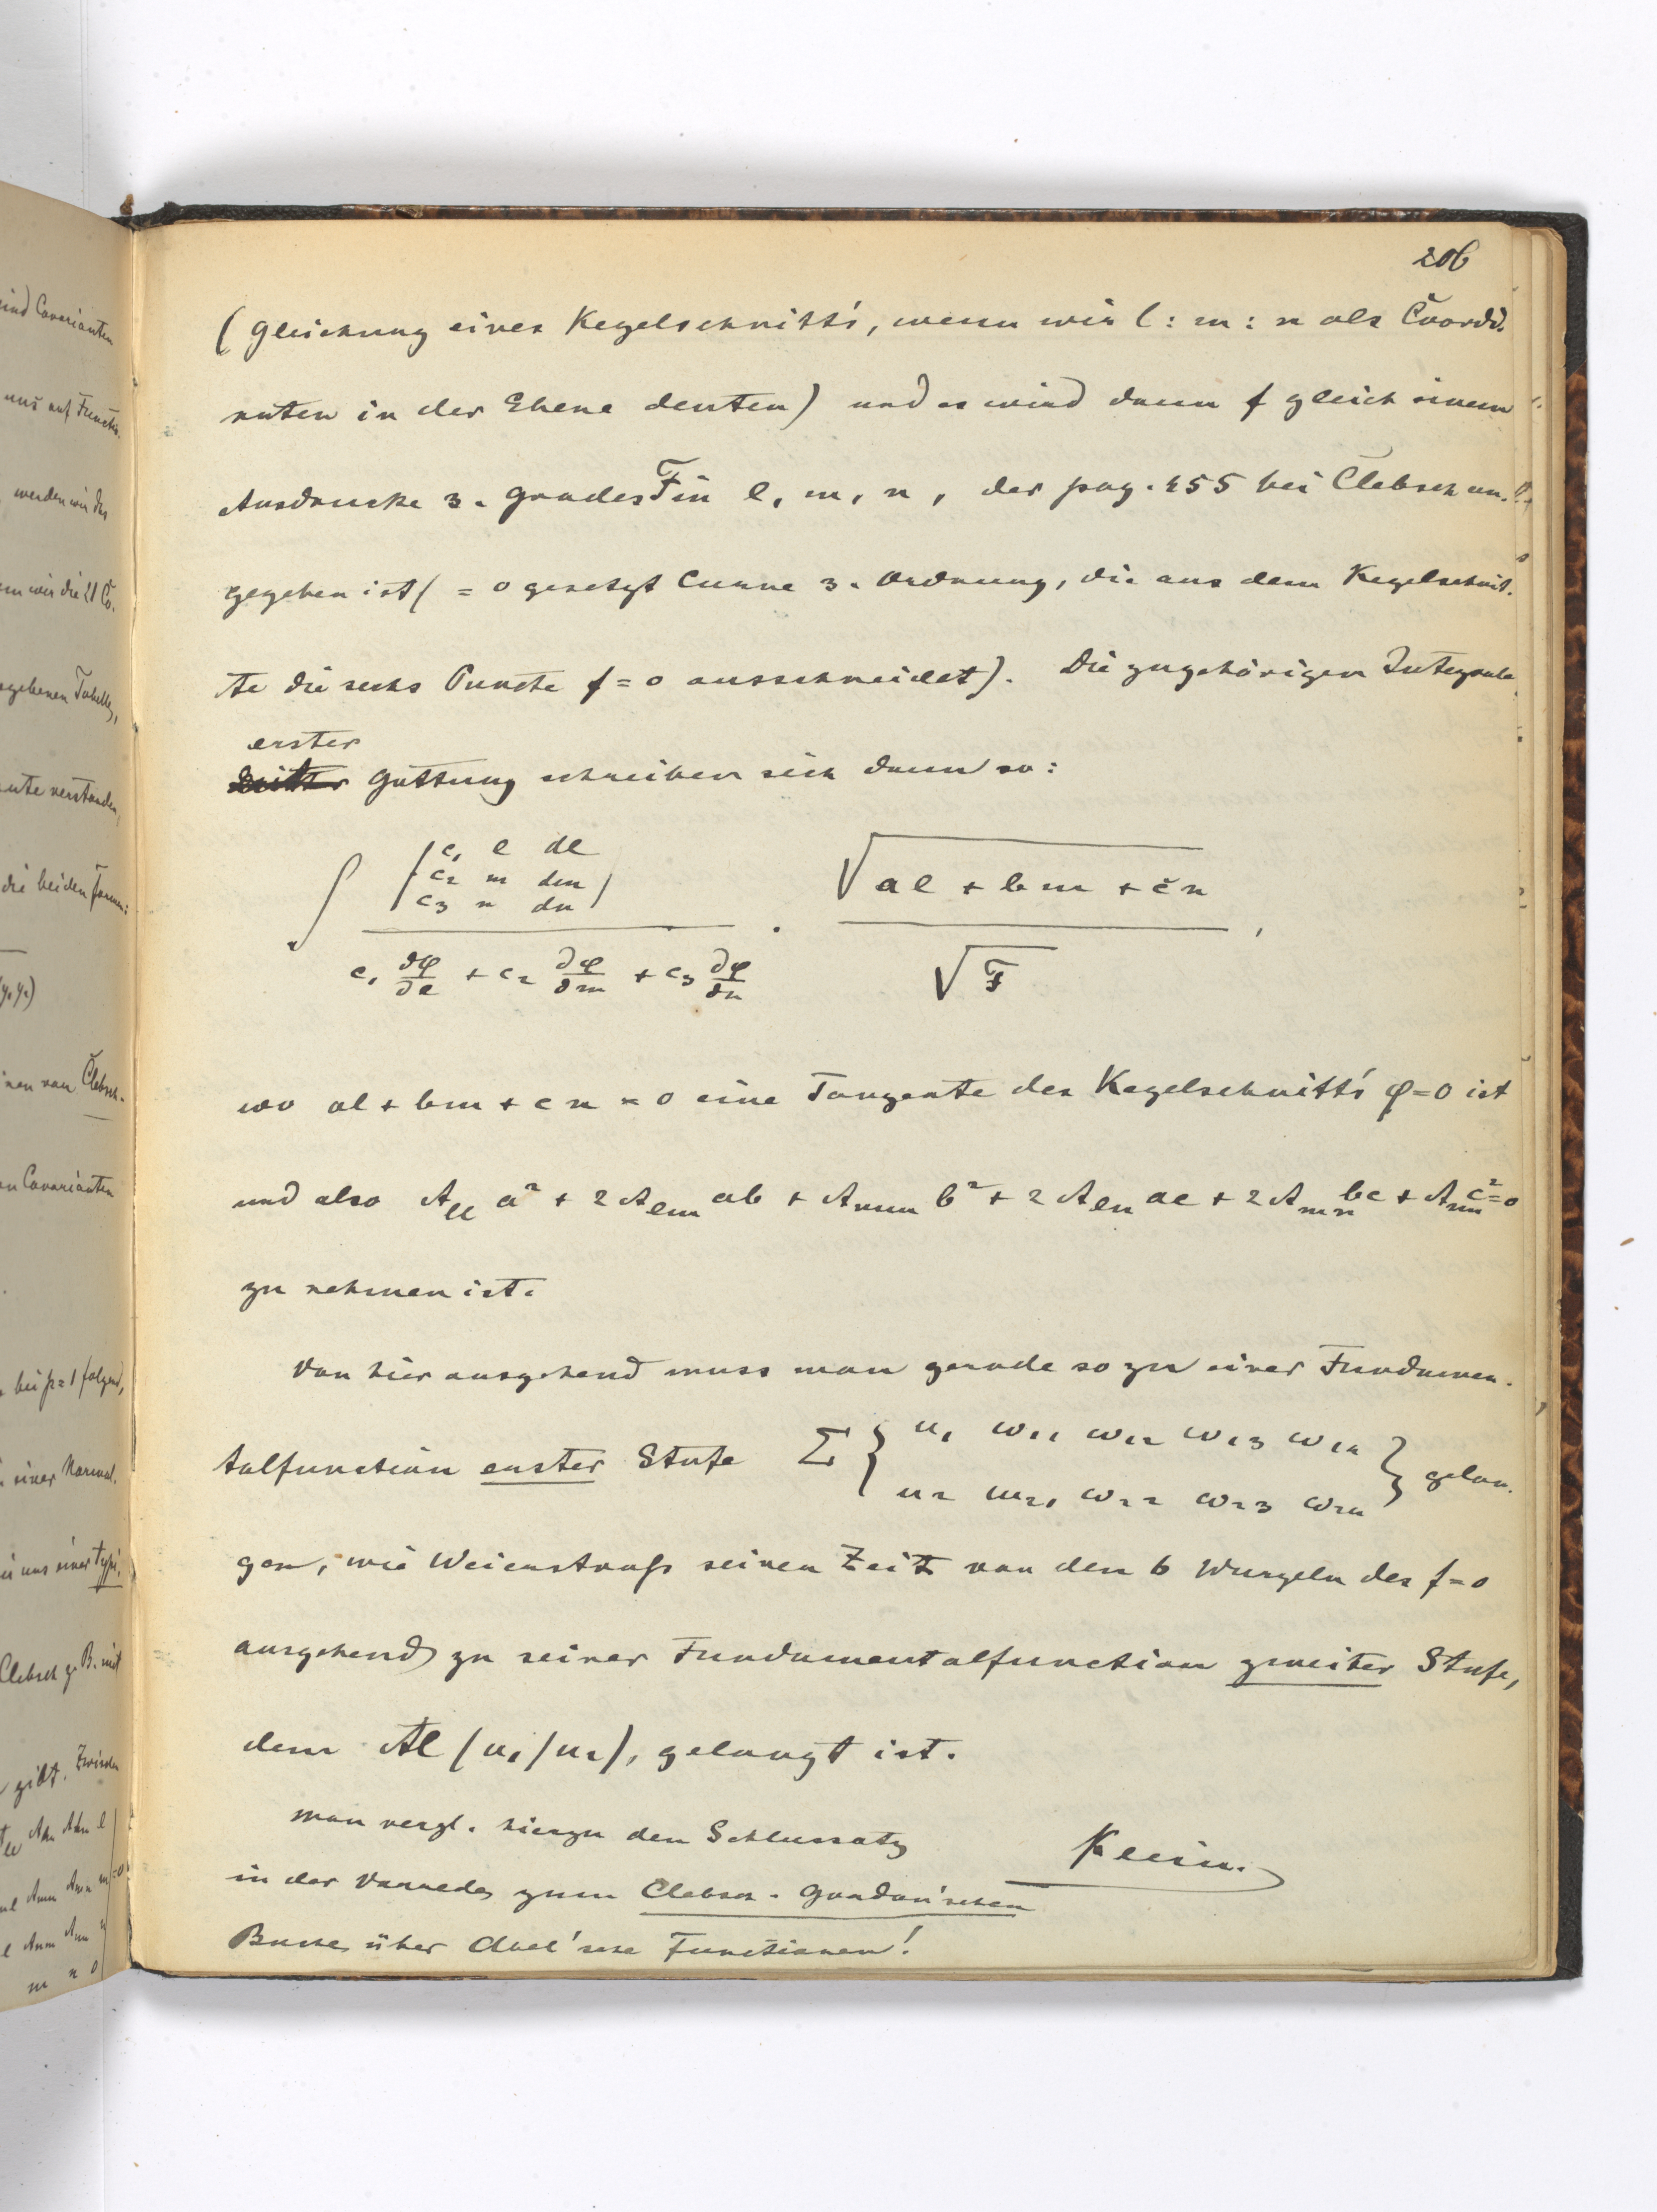 206
(Gleichung eines Kegelschnitt's, wenn wir l : m : n als Coordi-
naten in der Ebene deuten) und es wird dann f gleich einem
Ausdrucke 3. Grades F in l, m, n, der pag. 455 bei Clebsch an-
gegeben ist (= 0 gesetzt Curve 3. Ordnung, die aus dem Kegelschnit-
te die sechs Puncte f = 0 ausschneidet). Die zugehörigen Integrale
erster
Gattung schreiben sich dann so:
∫ | c₁ l dl / c₂ m dm / c₃ n dn | / (c₁ ∂φ/∂l + c₂ ∂φ/∂m + c₃ ∂φ/∂n) · √(al + bm + cn) / √F ,
wo al + bm + cn = 0 eine Tangente des Kegelschnitt's φ = 0 ist
und also A_ll a² + 2 A_lm ab + A_mm b² + 2 A_ln ac + 2 A_mn bc + A_nn c² = 0
zu nehmen ist.
Von hier ausgehend muss man gerade so zu einer Fundamen-
talfunction erster Stufe Σ { u₁ ω₁₁ ω₁₂ ω₁₃ ω₁₄ / u₂ ω₂₁ ω₂₂ ω₂₃ ω₂₄ } gelan-
gen, wie Weierstraß seiner Zeit von den 6 Wurzeln des f = 0
ausgehend zu seiner Fundamentalfunction zweiter Stufe,
dem Al (u₁/u₂), gelangt ist.
Man vergl. hierzu den Schlussatz
Klein.
in der Vorrede zum Clebsch-Gordan'schen
Buche über Abel'sche Functionen!